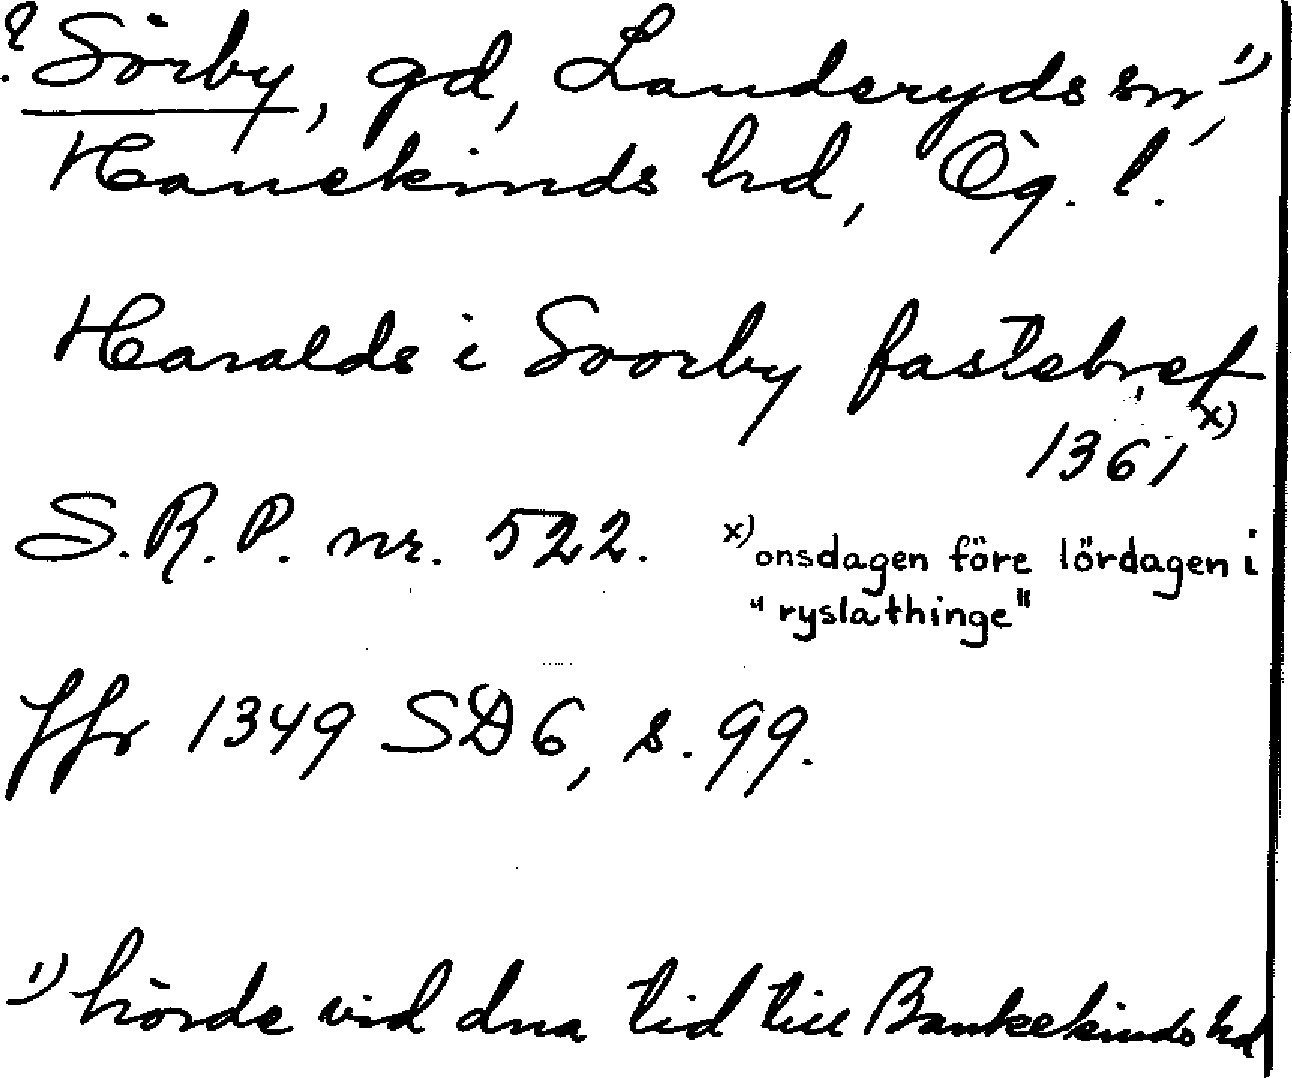 ? Sörby, gd, Landeryds sn,¹)
Hanekinds hd, Ög. l.
Haralds i Soorby fastebref
1361 x)
S.R.P. nr. 522. x) onsdagen före lördagen i
"ryslathinge"
Jfr 1349 SD 6, s. 99.
¹) hörde vid dna tid till Bankekinds hd